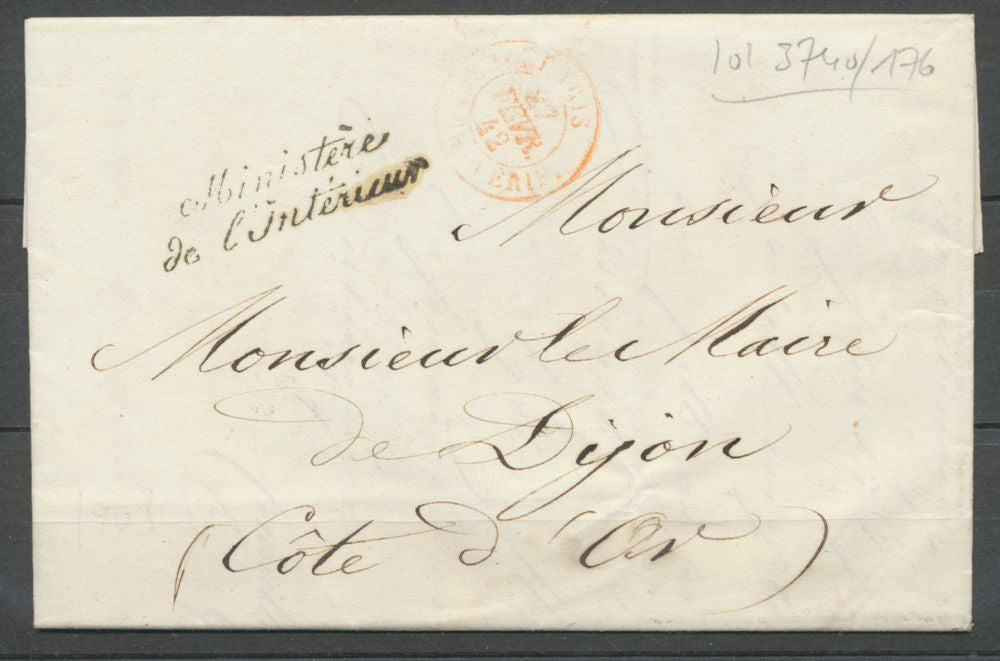 lol 3740/176
PARIS
FEVR.
42
Ministère
de l'Intérieur
Monsieur
Monsieur le Maire
de Dijon
(Côte d'Or)